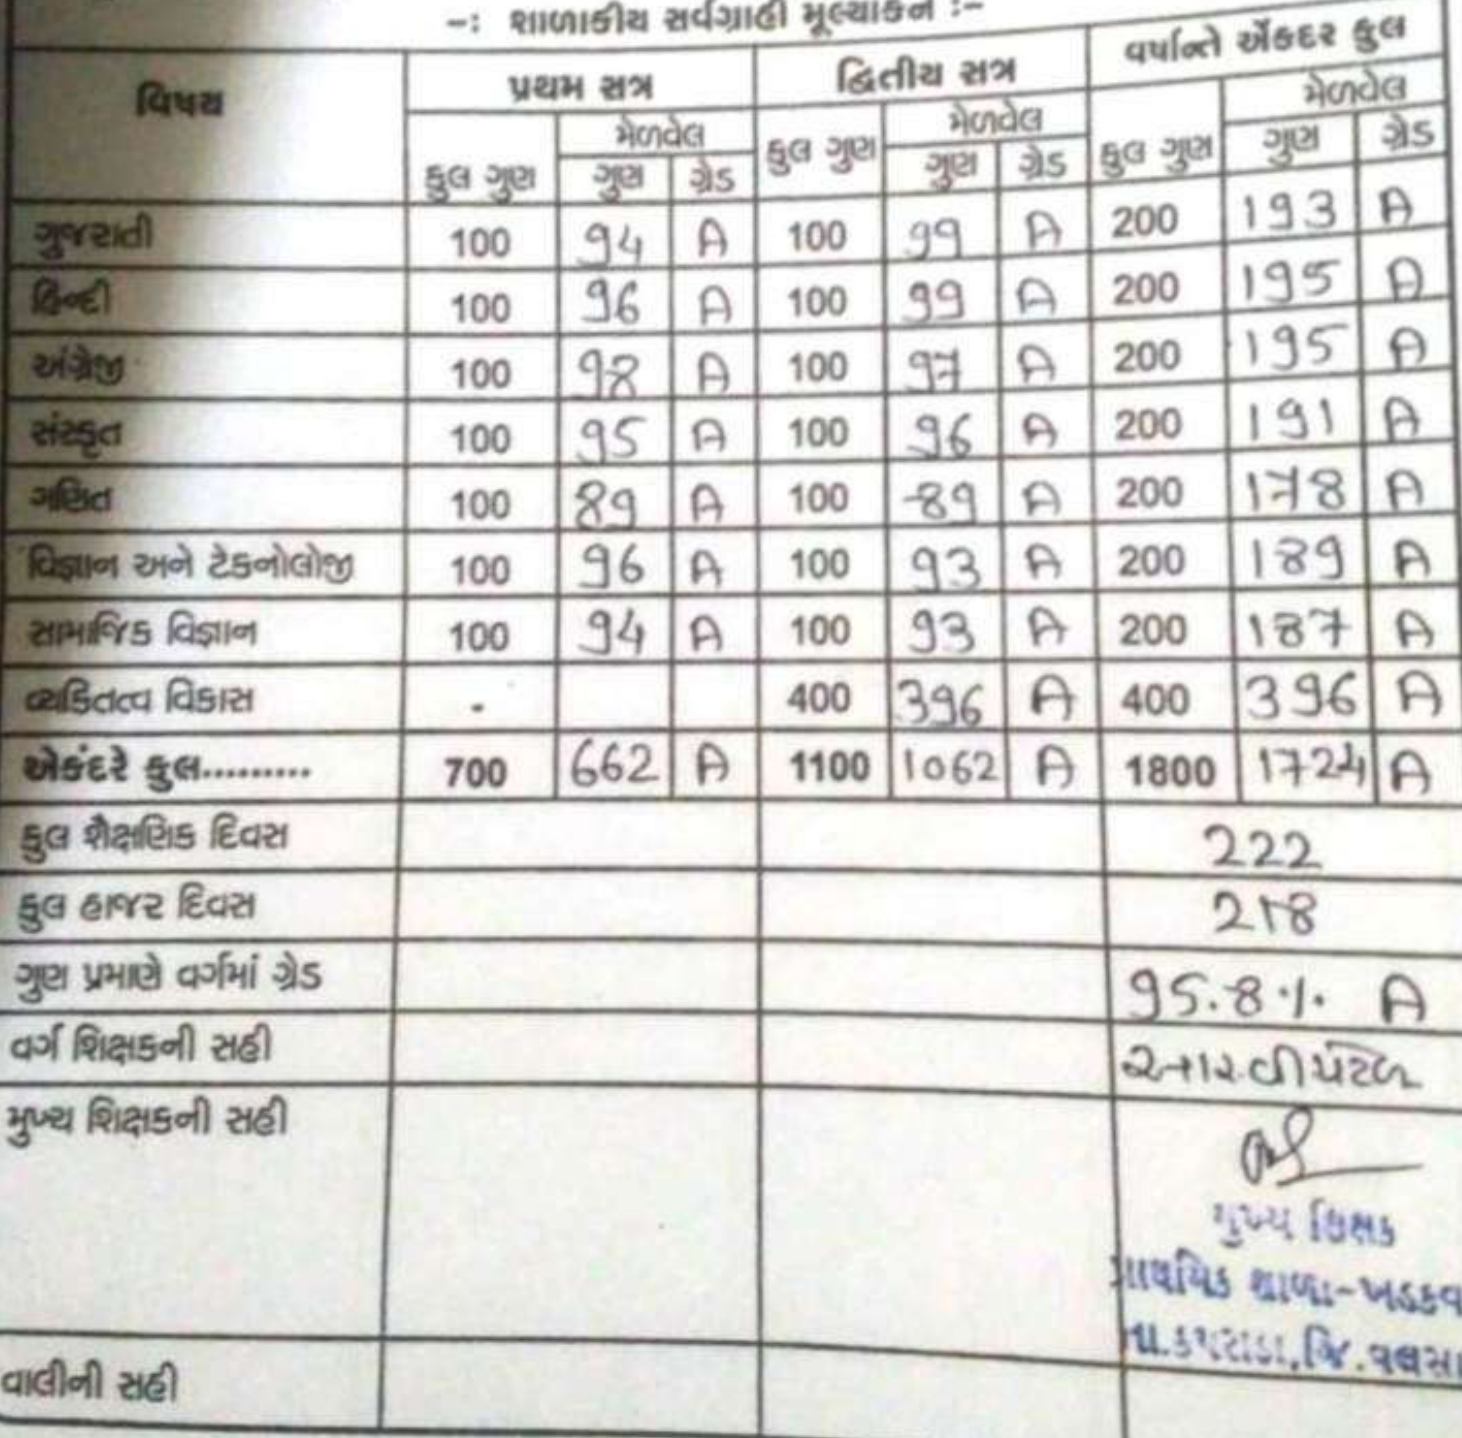 -: શાળાકીય સર્વગ્રાહી મૂલ્યાંકન :-
વિષય પ્રથમ સત્ર દ્વિતીય સત્ર વર્ષાન્તે એકંદર કુલ
કુલ ગુણ મેળવેલ કુલ ગુણ મેળવેલ કુલ ગુણ મેળવેલ
ગુણ ગ્રેડ ગુણ ગ્રેડ ગુણ ગ્રેડ
ગુજરાતી 100 94 A 100 99 A 200 193 A
હિન્દી 100 96 A 100 99 A 200 195 A
અંગ્રેજી 100 98 A 100 97 A 200 195 A
સંસ્કૃત 100 95 A 100 96 A 200 191 A
ગણિત 100 89 A 100 89 A 200 178 A
વિજ્ઞાન અને ટેકનોલોજી 100 96 A 100 93 A 200 189 A
સામાજિક વિજ્ઞાન 100 94 A 100 93 A 200 187 A
વ્યકિતત્વ વિકાસ - 400 396 A 400 396 A
એકંદરે કુલ......... 700 662 A 1100 1062 A 1800 1724 A
કુલ શૈક્ષણિક દિવસ 222
કુલ હાજર દિવસ 218
ગુણ પ્રમાણે વર્ગમાં ગ્રેડ 95.8 % A
વર્ગ શિક્ષકની સહી આર.વી પટેલ
મુખ્ય શિક્ષકની સહી
મુખ્ય શિક્ષક
પ્રાથમિક શાળા-
તા.કપરાડા, જિ.વલસા
વાલીની સહી